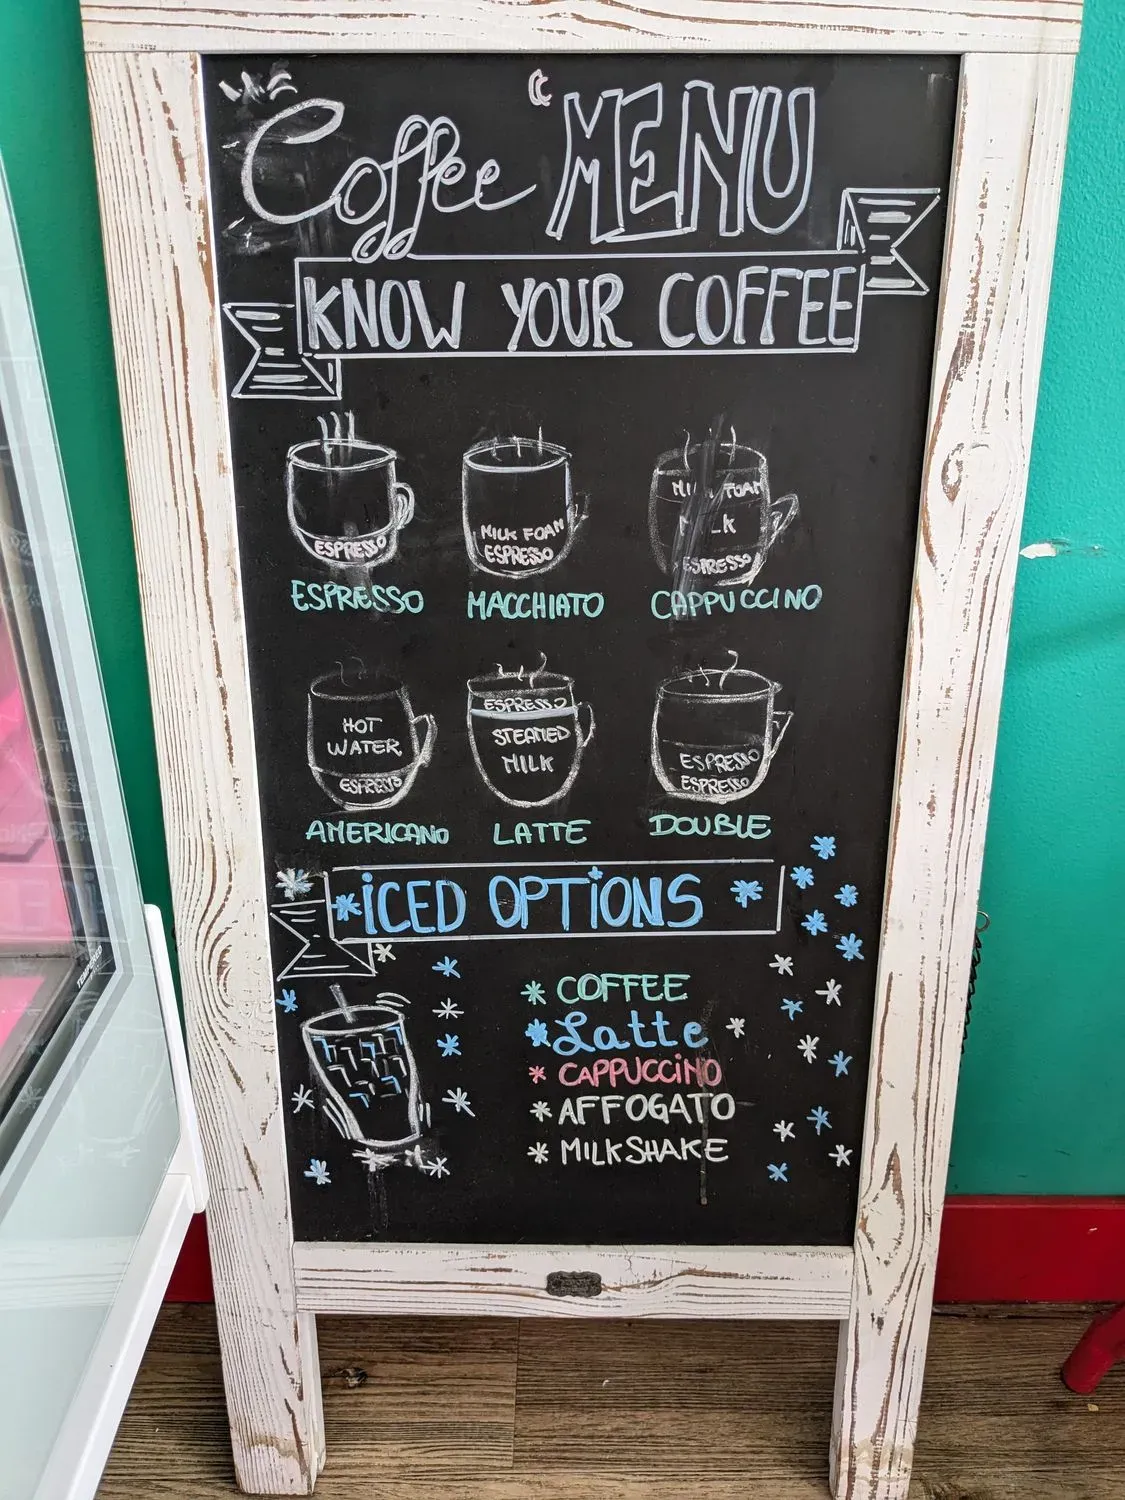 Coffee MENU
KNOW YOUR COFFEE
ESPRESSO
ESPRESSO
MILK FOAM
ESPRESSO
MACCHIATO
FOAM
ESPRESSO
CAPPUCCINO
HOT
WATER
ESPRESSO
AMERICANO
ESPRESSO
STEAMED
MILK
LATTE
ESPRESSO
ESPRESSO
DOUBLE
ICED OPTIONS
COFFEE
Latte
CAPPUCCINO
AFFOGATO
MILKSHAKE